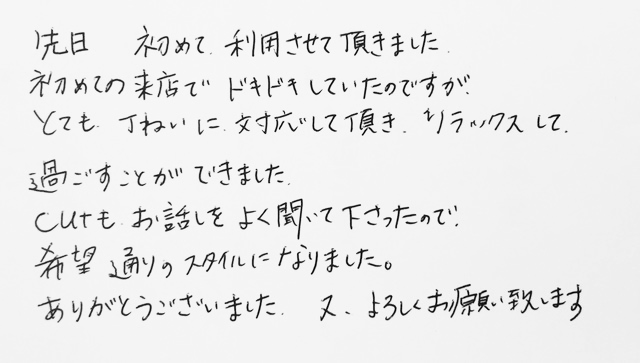 先日 初めて、利用させて頂きました。
初めての来店で ドキドキしていたのですが、
とても、丁ねいに、対応して頂き、リラックスして、
過ごすことが できました。
cutも、お話しを よく聞いて下さったので、
希望 通りの スタイルに なりました。
ありがとうございました。 又、よろしくお願い致します